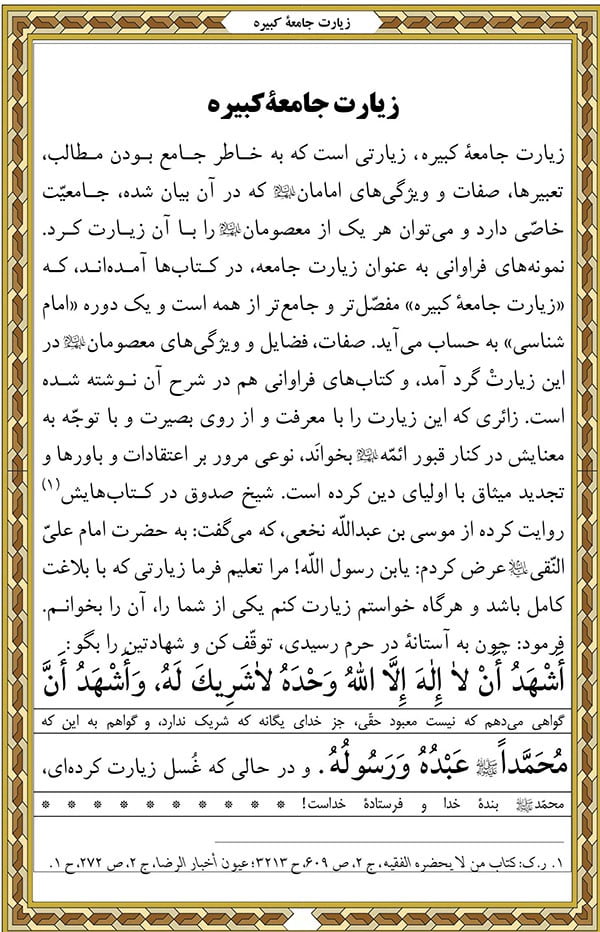 زیارت جامعۀ کبیره
زیارت جامعۀ کبیره
زیارت جامعۀ کبیره، زیارتی است که به خاطر جامع بودن مطالب،
تعبیرها، صفات و ویژگی‌های امامان علیهم‌السلام که در آن بیان شده، جامعیّت
خاصّی دارد و می‌توان هر یک از معصومان علیهم‌السلام را با آن زیارت کرد.
نمونه‌های فراوانی به عنوان زیارت جامعه، در کتاب‌ها آمده‌اند، که
«زیارت جامعۀ کبیره» مفصّل‌تر و جامع‌تر از همه است و یک دوره «امام
شناسی» به حساب می‌آید. صفات، فضایل و ویژگی‌های معصومان علیهم‌السلام در
این زیارتْ گرد آمد، و کتاب‌های فراوانی هم در شرح آن نوشته شده
است. زائری که این زیارت را با معرفت و از روی بصیرت و با توجّه به
معنایش در کنار قبور ائمّه علیهم‌السلام بخوانَد، نوعی مرور بر اعتقادات و باورها و
تجدید میثاق با اولیای دین کرده است. شیخ صدوق در کتاب‌هایش(۱)
روایت کرده از موسی بن عبداللّه نخعی، که می‌گفت: به حضرت امام علیّ
النّقی علیه‌السلام عرض کردم: یابن رسول اللّه! مرا تعلیم فرما زیارتی که با بلاغت
کامل باشد و هرگاه خواستم زیارت کنم یکی از شما را، آن را بخوانم.
فرمود: چون به آستانۀ در حرم رسیدی، توقّف کن و شهادتین را بگو:
أَشْهَدُ أَنْ لاٰ إِلٰهَ إِلَّا اللهُ وَحْدَهُ لاٰشَرِيكَ لَهُ، وَأَشْهَدُ أَنَّ
گواهی می‌دهم که نیست معبود حقّی، جز خدای یگانه که شریک ندارد، و گواهم به این که
مُحَمَّداً ﷺ عَبْدُهُ وَرَسُولُهُ. و در حالی که غُسل زیارت کرده‌ای،
محمّد ﷺ بندۀ خدا و فرستادۀ خداست! * * * * * * * * * * *
۱. ر.ک: کتاب من لا یحضره الفقیه، ج ۲، ص ۶۰۹، ح ۳۲۱۳؛ عیون أخبار الرضا، ج ۲، ص ۲۷۲، ح ۱.